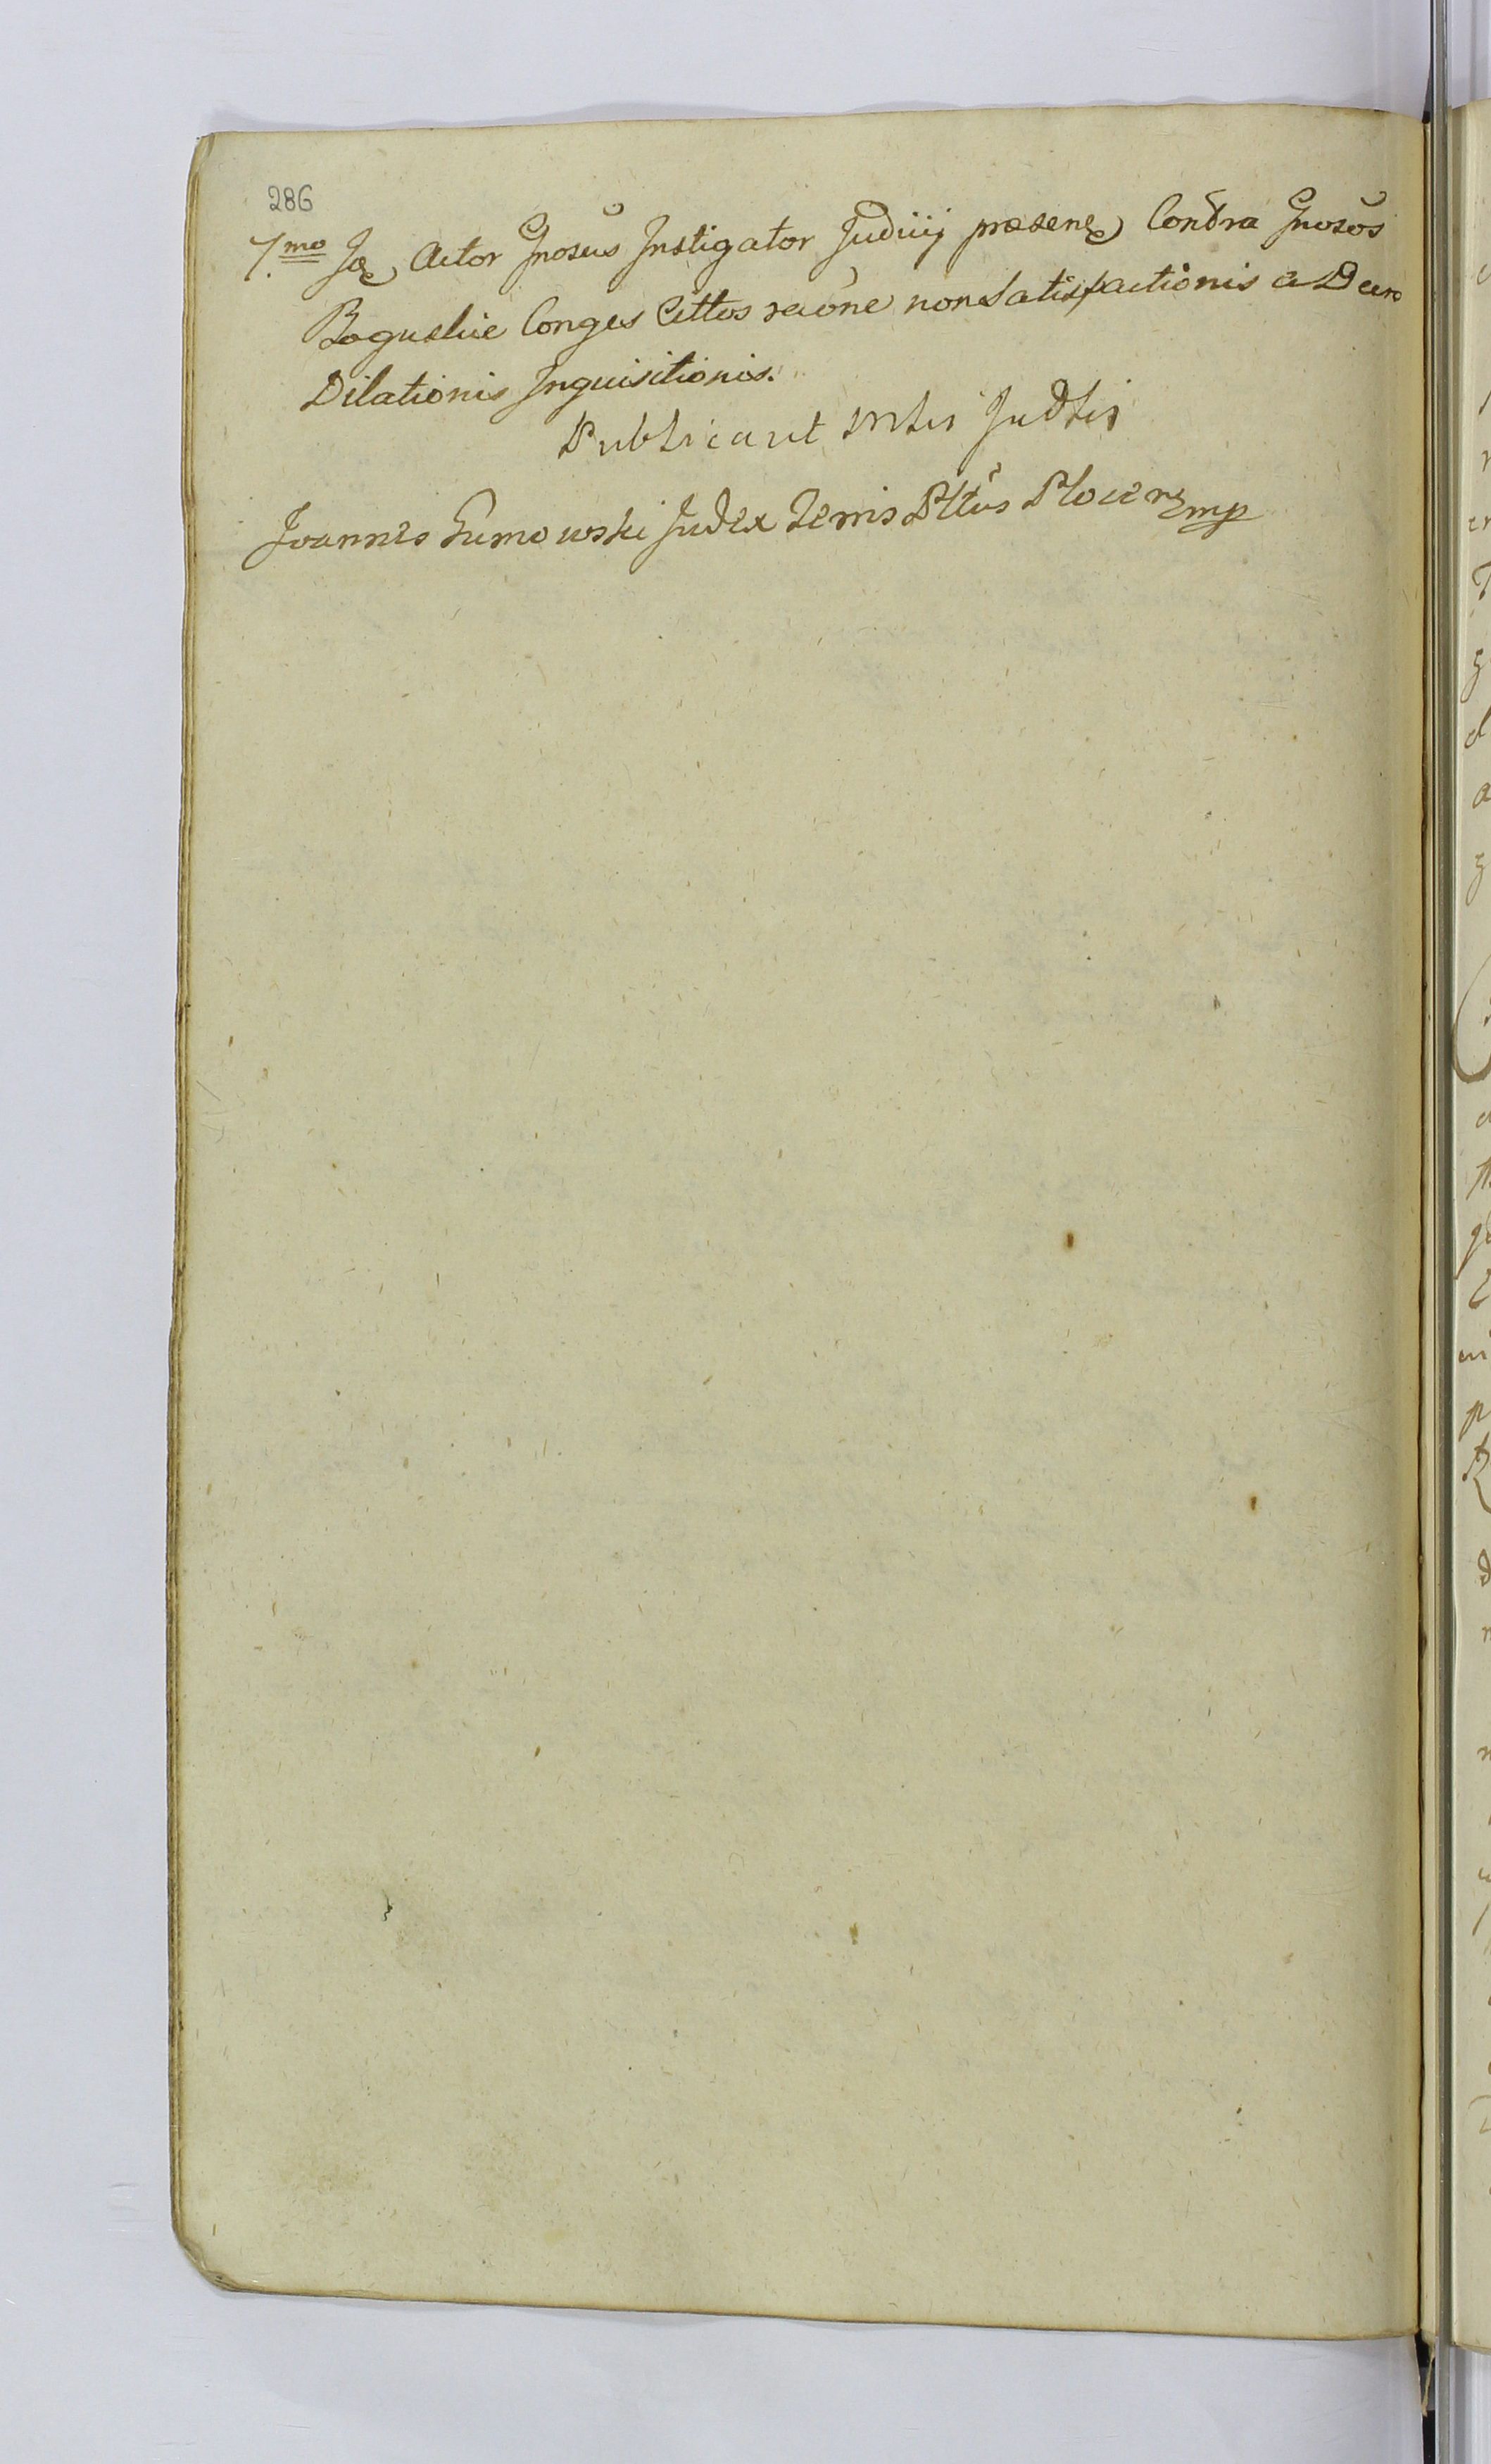 286
7.mo Ja Actor Gnosus Instigator Judicij præsens Contra Gnosos
Boguckie Conges Cittos raõne non Satisfactionis a Decro
Dilationis Inquisitionis.
Publicavit Judtis
Joannes Gumowski Judex Terris Pltus Plocen mp